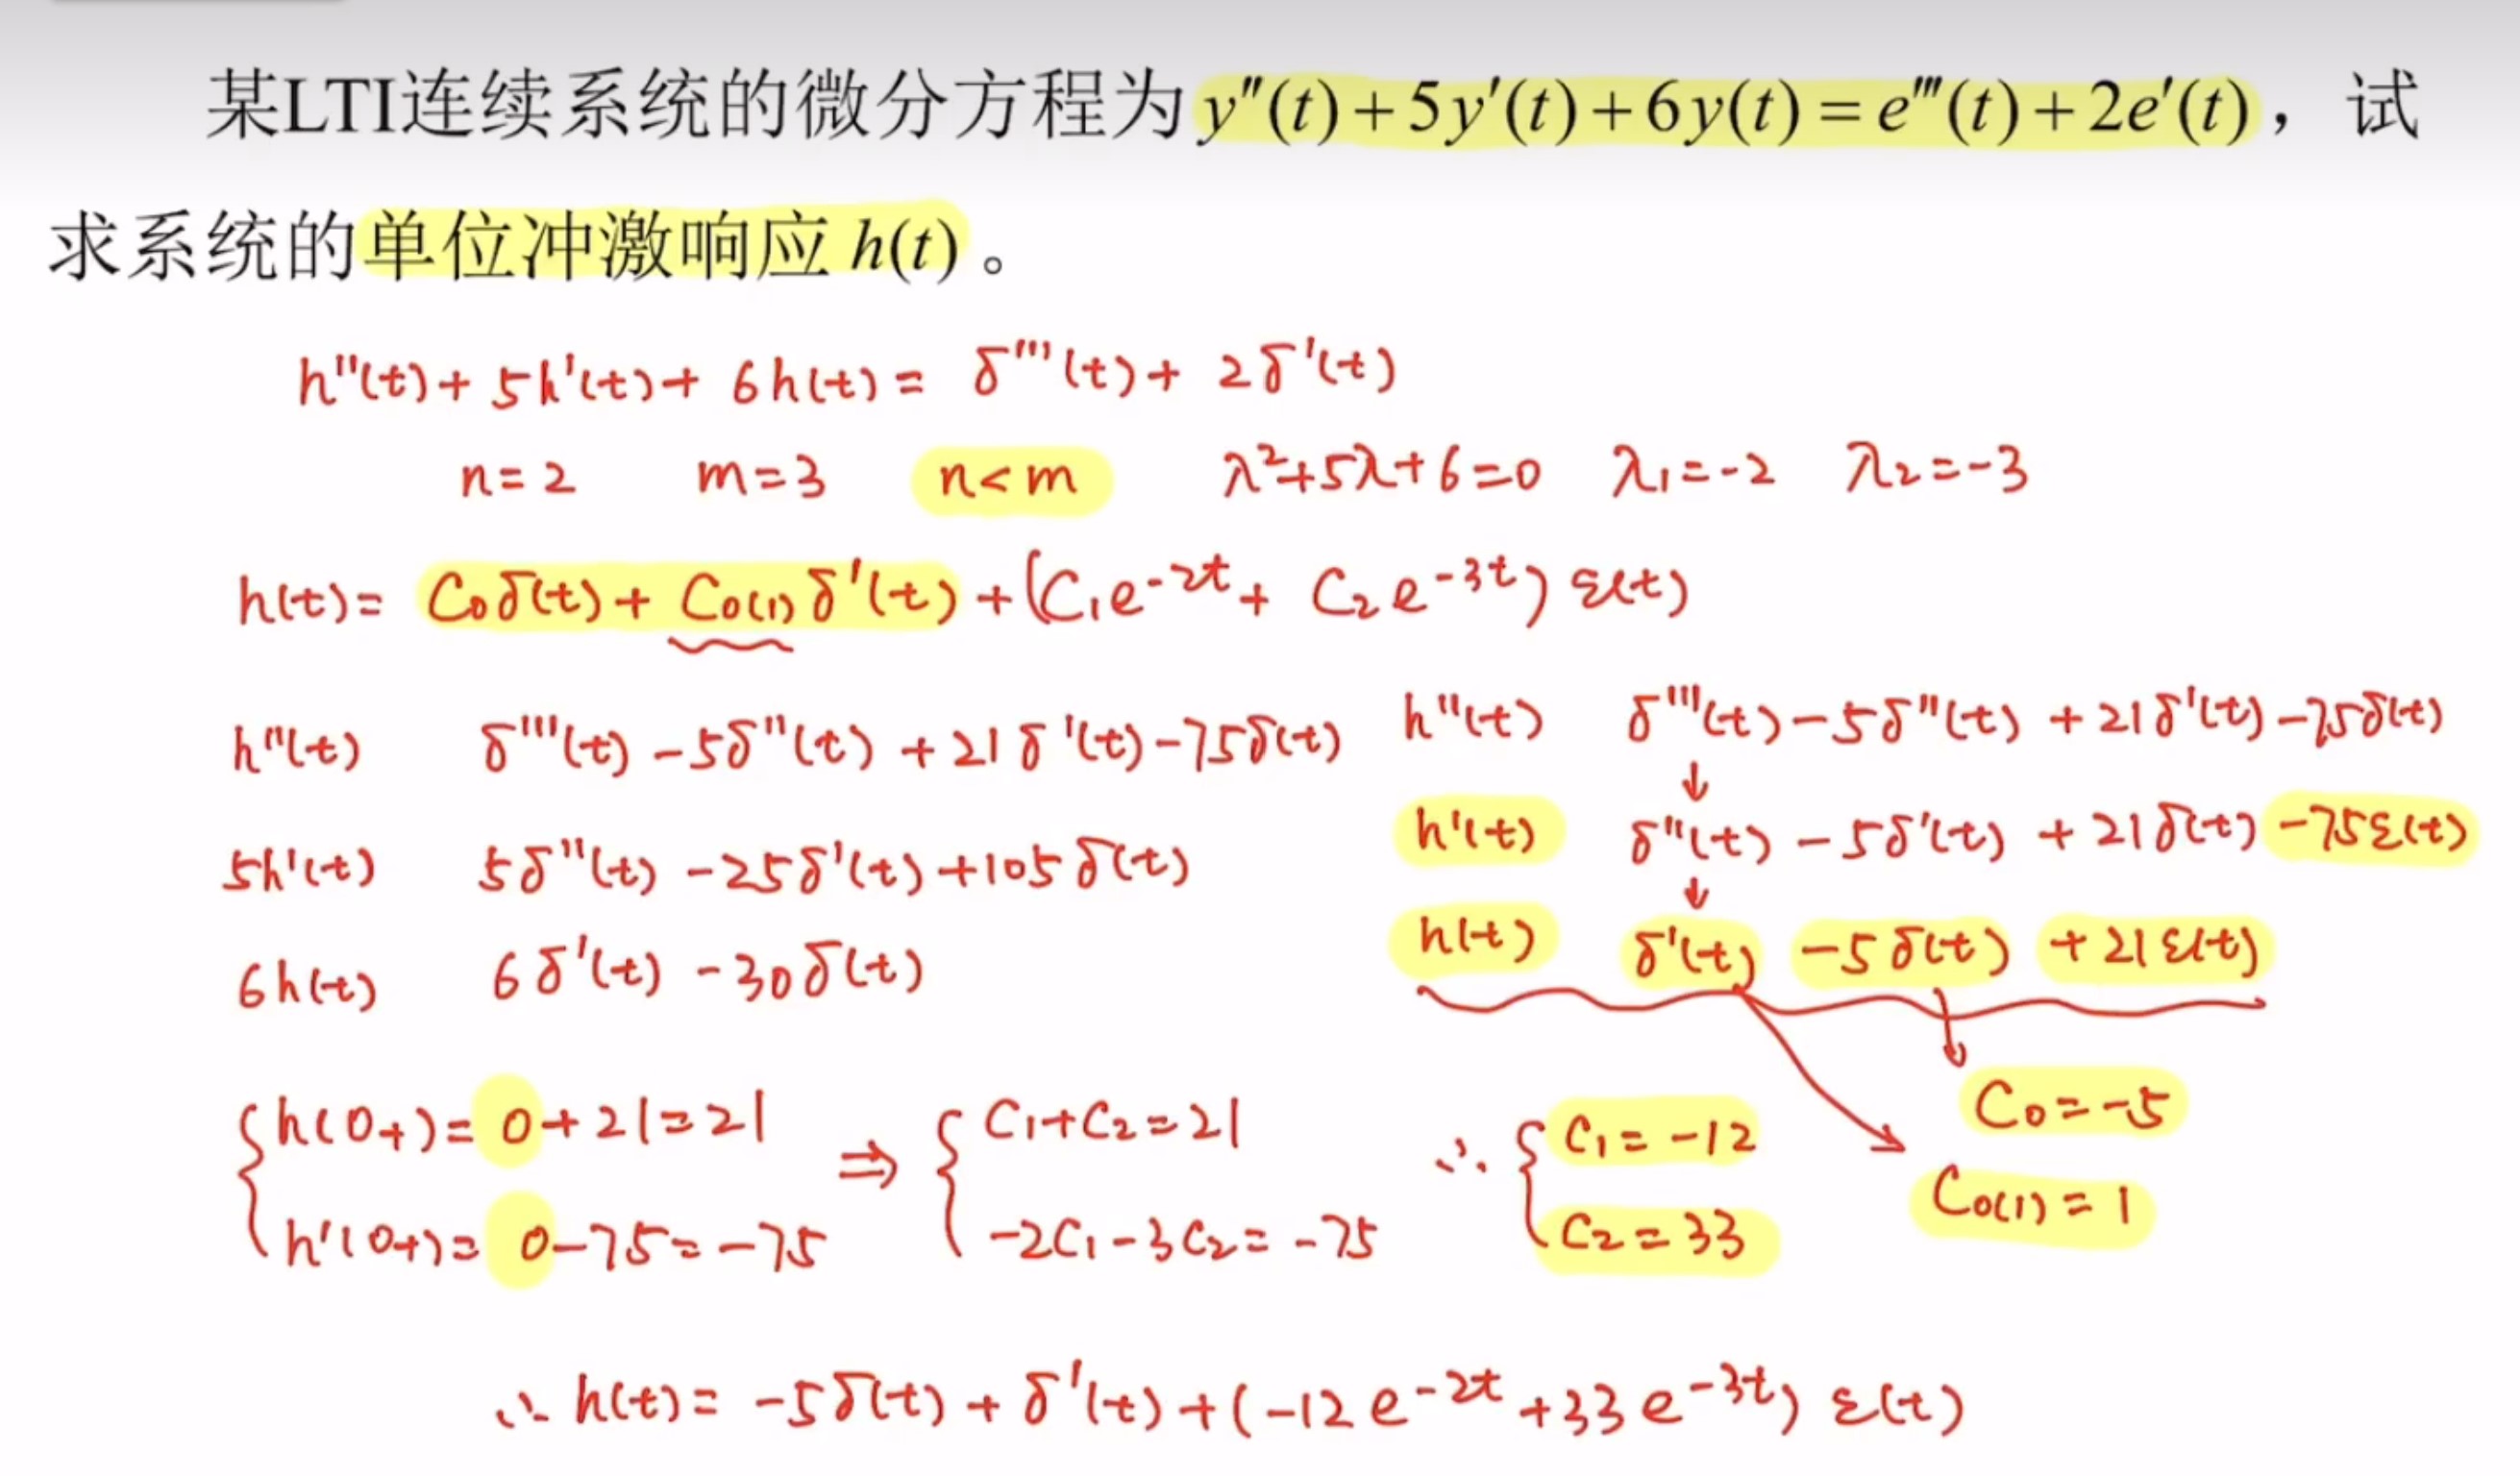 某LTI连续系统的微分方程为 y″(t)+5y′(t)+6y(t)=e‴(t)+2e′(t)，试
求系统的单位冲激响应 h(t)。
h''(t)+5h'(t)+6h(t)=δ'''(t)+2δ'(t)
n=2 m=3 n<m λ²+5λ+6=0 λ₁=-2 λ₂=-3
h(t)=C₀δ(t)+C₀₍₁₎δ'(t)+(C₁e^{-2t}+C₂e^{-3t})ε(t)
h''(t) δ'''(t)-5δ''(t)+21δ'(t)-75δ(t)
5h'(t) 5δ''(t)-25δ'(t)+105δ(t)
6h(t) 6δ'(t)-30δ(t)
h''(t) δ'''(t)-5δ''(t)+21δ'(t)-75δ(t)
↓
h'(t) δ''(t)-5δ'(t)+21δ(t)-75ε(t)
↓
h(t) δ'(t)-5δ(t)+21ε(t)
C₀=-5
C₀₍₁₎=1
{h(0₊)=0+21=21
h'(0₊)=0-75=-75
⇒ {C₁+C₂=21
-2C₁-3C₂=-75
∴ {C₁=-12
C₂=33
∴ h(t)=-5δ(t)+δ'(t)+(-12e^{-2t}+33e^{-3t})ε(t)